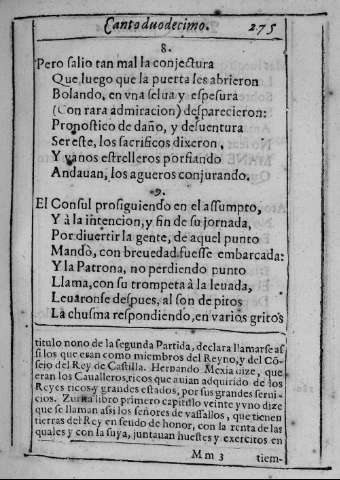 Canto duodecimo. 275
8.
Pero salio tan mal la conjectura
Que luego que la puerta les abrieron
Bolando, en vna selua y espesura
(Con rara admiracion) desparecieron:
Pronostico de daño, y desuentura
Ser este, los sacrificos dixeron,
Y vanos estrelleros porfiando
Andauan, los agueros conjurando.
9.
El Consul prosiguiendo en el assumpto,
Y à la intencion, y fin de su jornada,
Por diuertir la gente, de aquel punto
Mandò, con breuedad fuesse embarcada:
Y la Patrona, no perdiendo punto
Llama, con su trompeta à la leuada,
Leuaronse despues, al son de pitos
La chusma respondiendo, en varios gritos
titulo nono de la segunda Partida, declara llamarse as
si los que eran como miembros del Reyno, y del Cõ-
sejo del Rey de Castilla. Hernando Mexia dize, que
eran los Caualleros, ricos que auian adquirido de los
Reyes ricos y grandes estados, por sus grandes serui-
cios. Zurita libro primero capitulo veinte y vno dize
que se llaman assi los señores de vassallos, que tienen
tierras del Rey en feudo de honor, con la renta de las
quales y con la suya, juntauan huestes y exercitos en
M m 3 tiem-